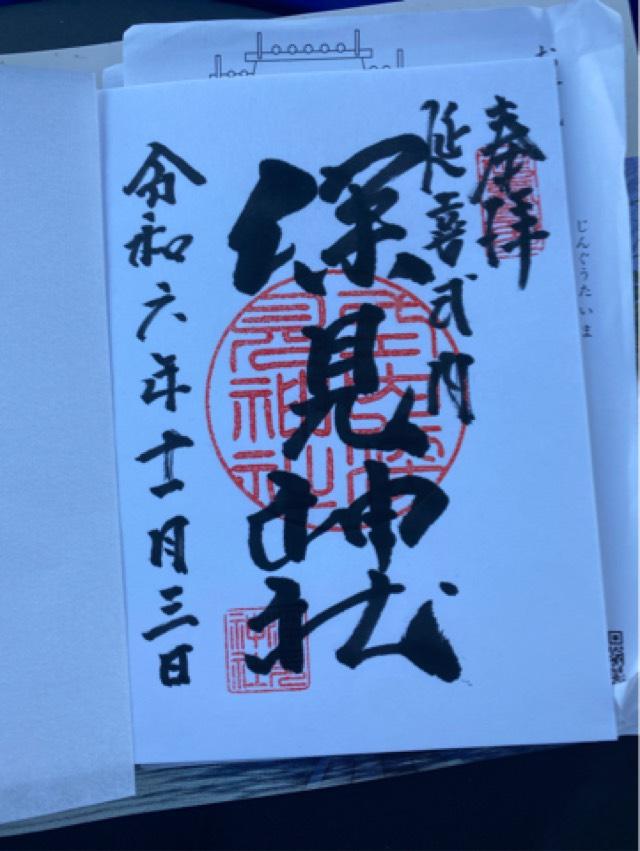 奉拝
延喜式内
深見神社
令和六年十一月三日
じんぐうたいま